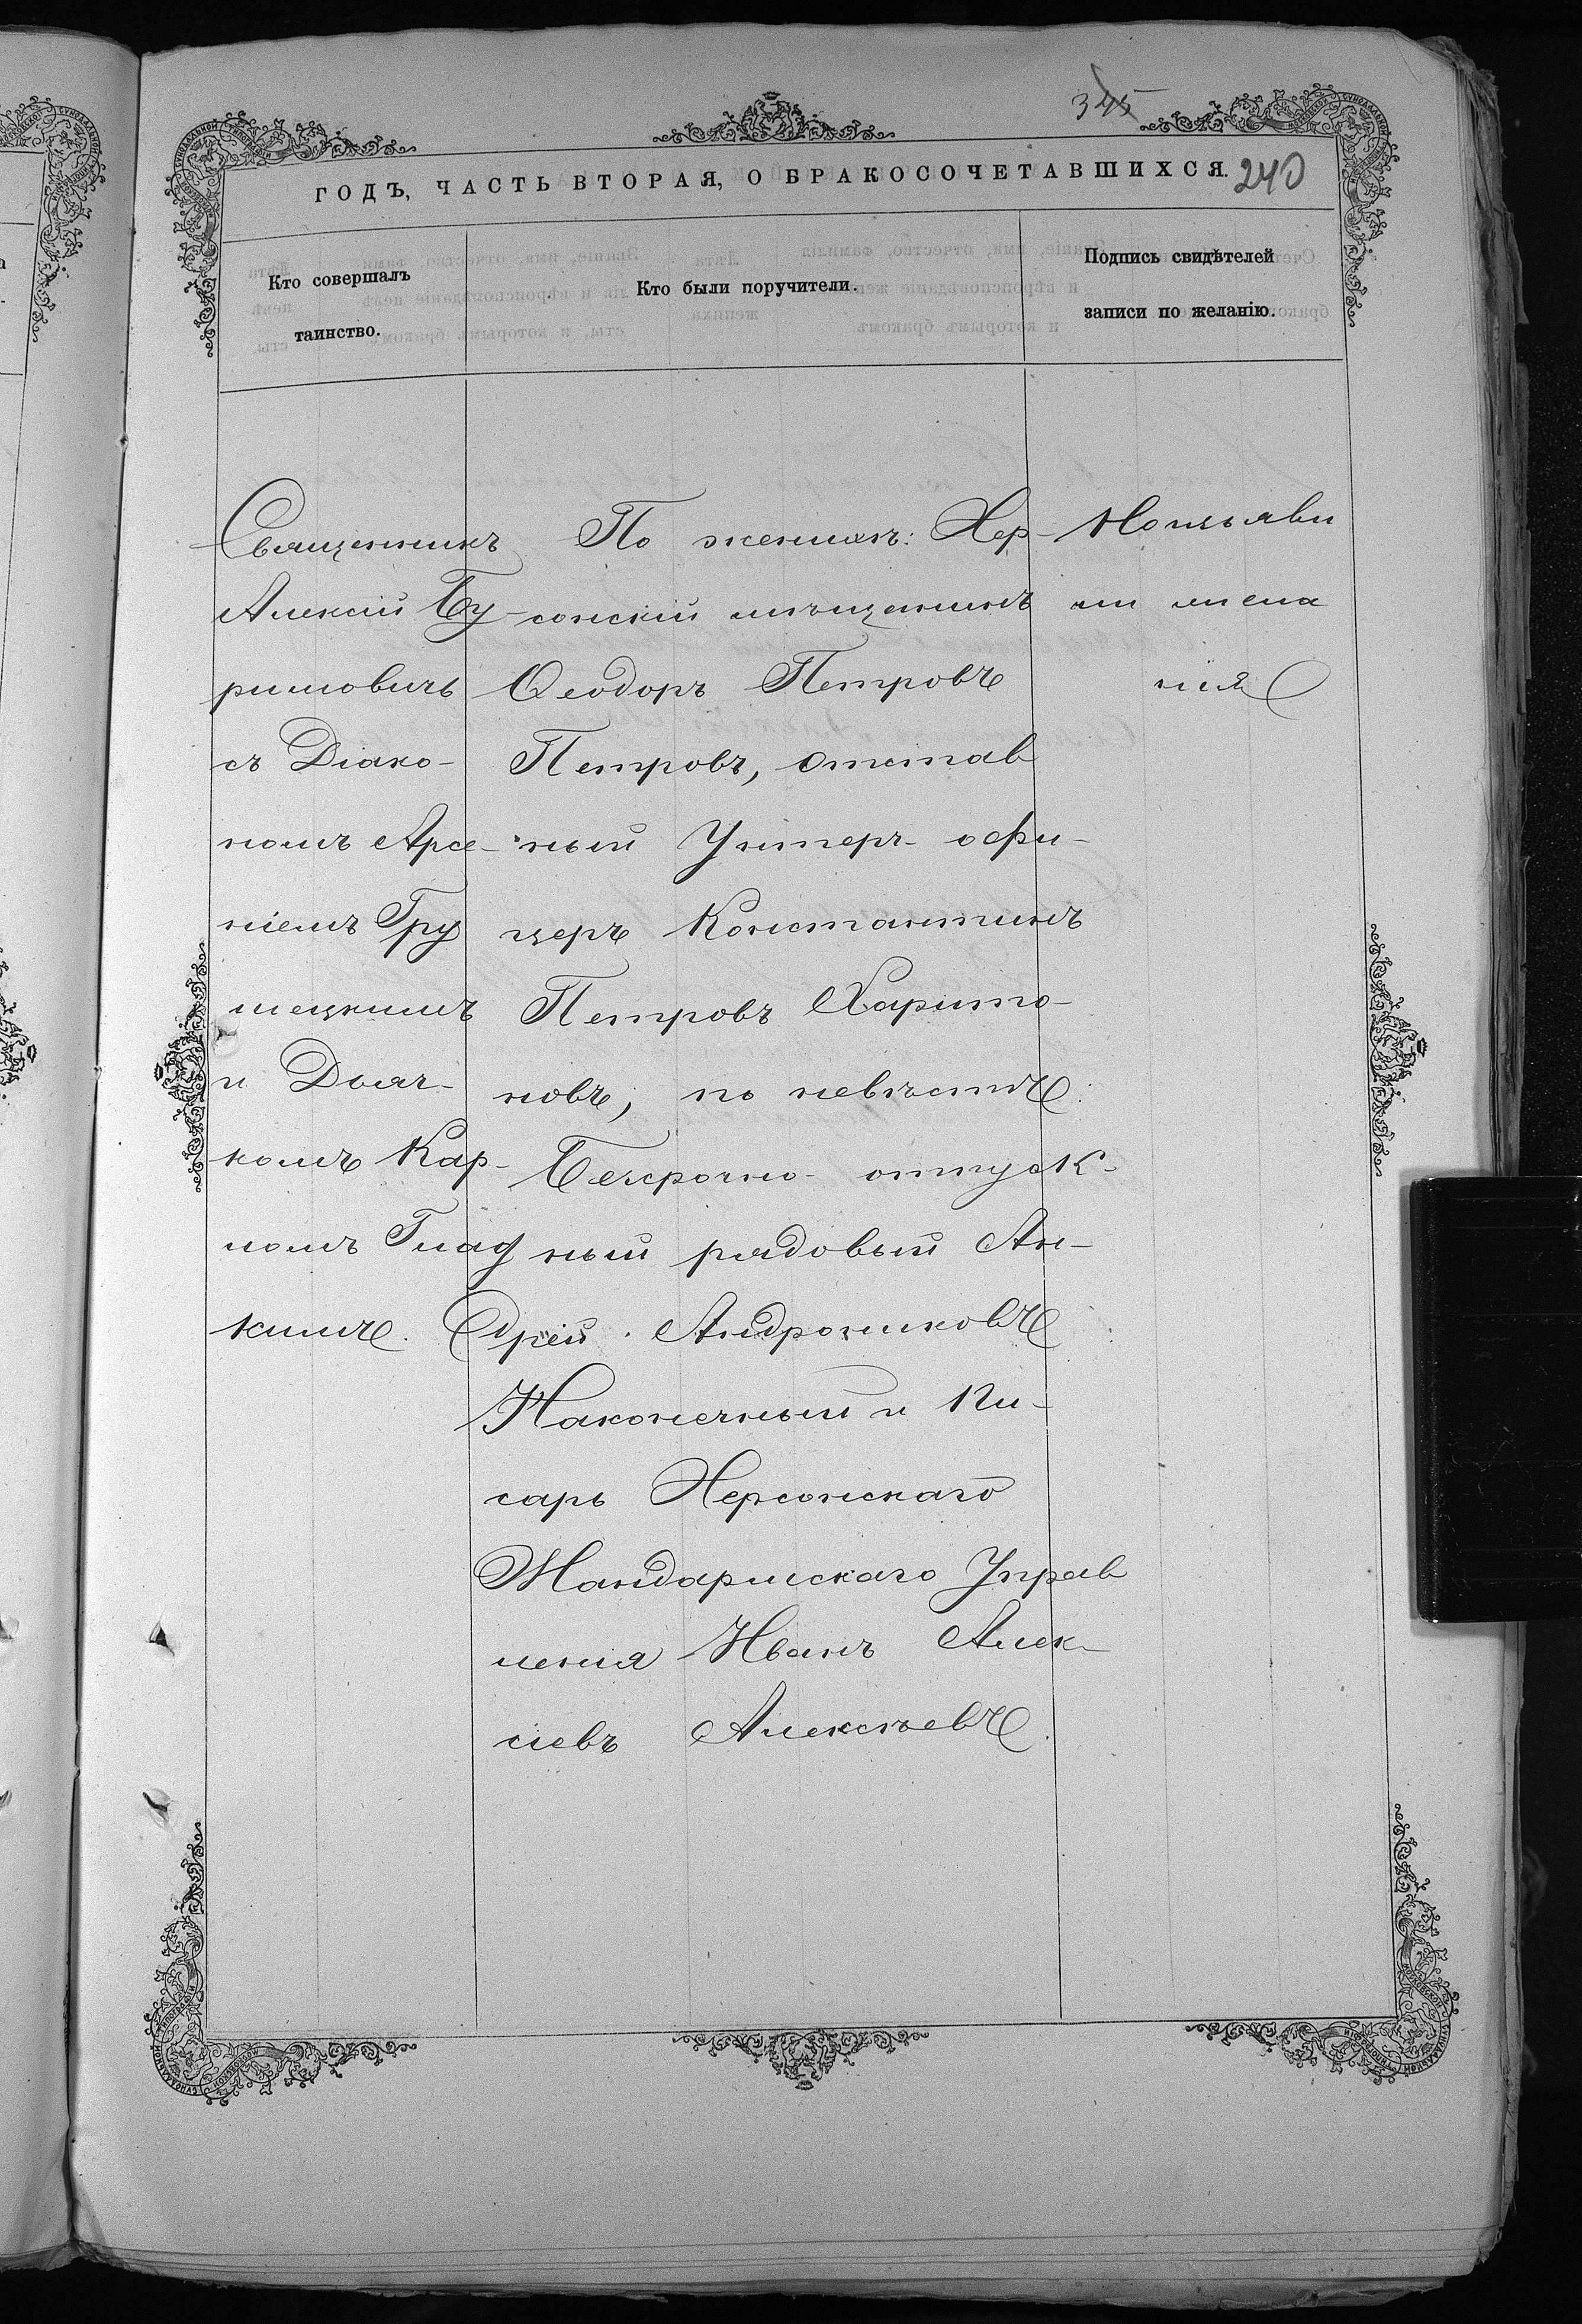 345
ГОДЪ, ЧАСТЬ ВТОРАЯ, О БРАКОСОЧЕТАВШИХСЯ. 240
Кто совершалъ
таинство.
Кто были поручители.
Подпись свидѣтелей
записи по желанію.
Священникъ
Алексій Бу-
римовичъ
съ Діако-
номъ Арсе-
ніемъ Гру
шецкимъ
и Дьяч-
комъ Кар-
помъ Глад
кимъ.
По женихѣ: Хер-
сонскій мѣщанинъ
Ѳеодоръ Петровъ
Петровъ, отстав
ный Унтеръ-офи-
церъ Константинъ
Петровъ Харито-
новъ; по невѣстѣ:
Безсрочно-отпуск-
ный рядовый Ан-
дрей Андрониковъ
Наконечный и Пи-
сарь Херсонскаго
Жандармскаго Управ
ленія Иванъ Алек-
сіевъ Алексѣевъ.
изъяви
ли
нія